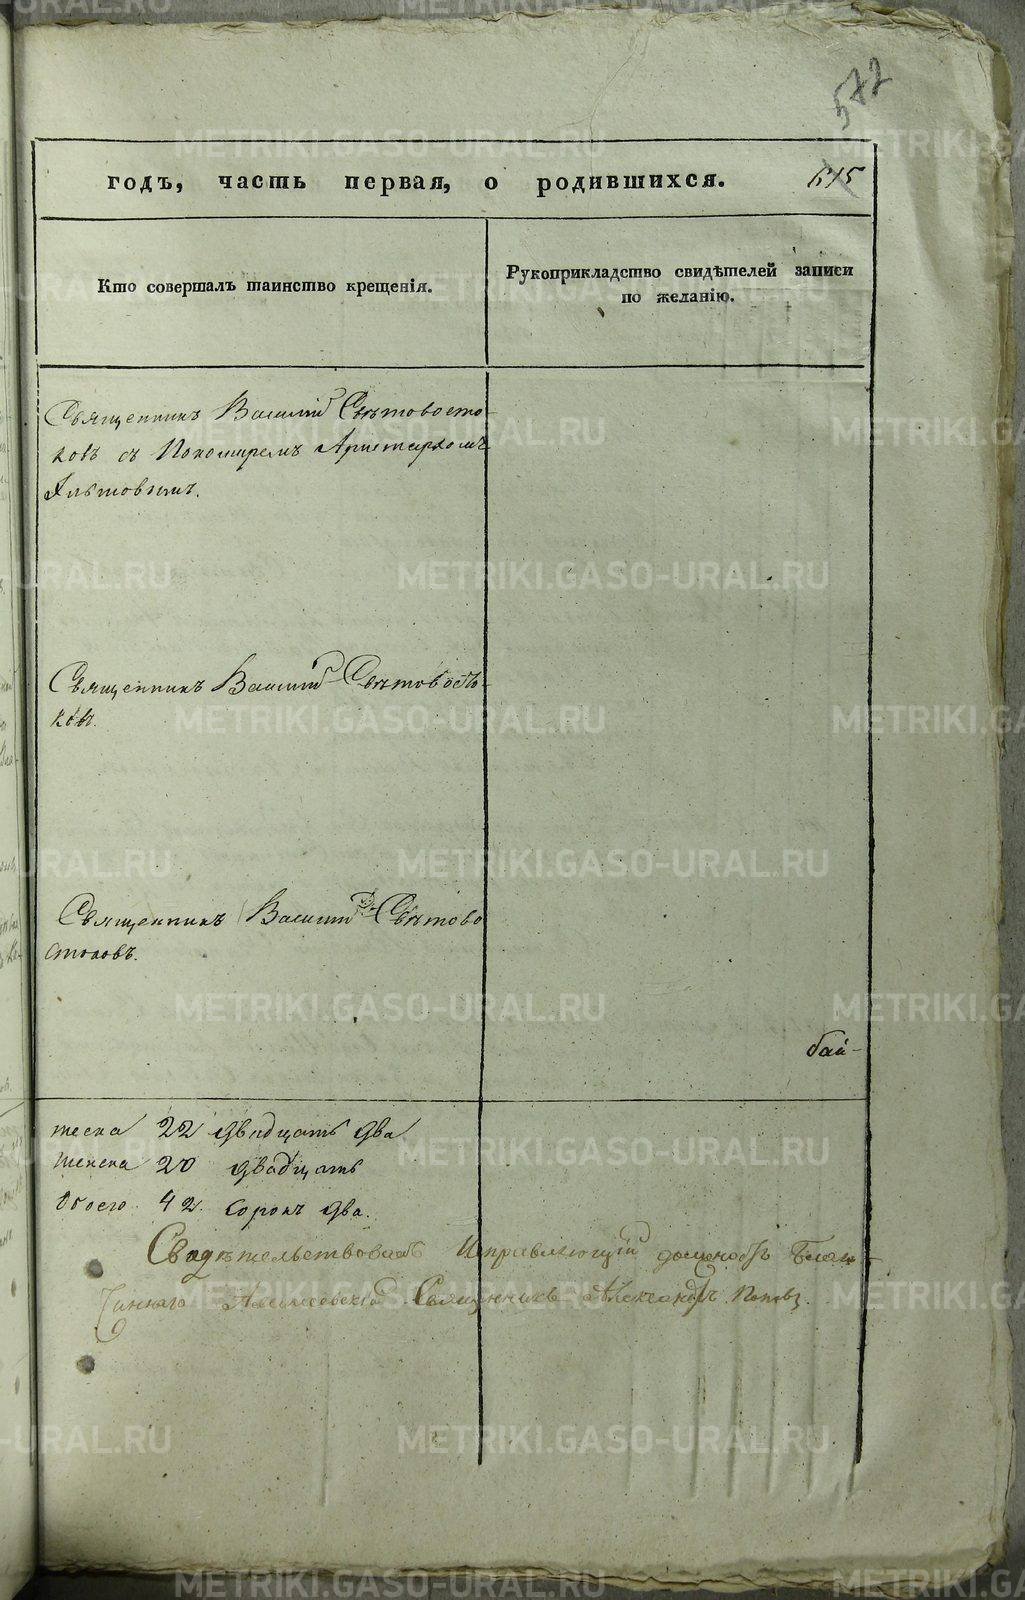 572
годъ, часть первая, о родившихся. 615
Кто совершалъ таинство крещенія.
Рукоприкладство свидѣтелей записи
по желанію.
Священникъ Василий Свѣтовосто-
ковъ съ Пономаремъ Аристархомъ
Священникъ Василий Свѣтовосто-
ковъ.
Священникъ Василий Свѣтово
стоковъ.
бай-
22 двадцать два
20 двадцать
Обоего 42. сорокъ два.
Свидѣтельствовалъ Исправляющий должность Благо-
чиннаго Священникъ Александръ Поповъ.
METRIKI.GASO-URAL.RU